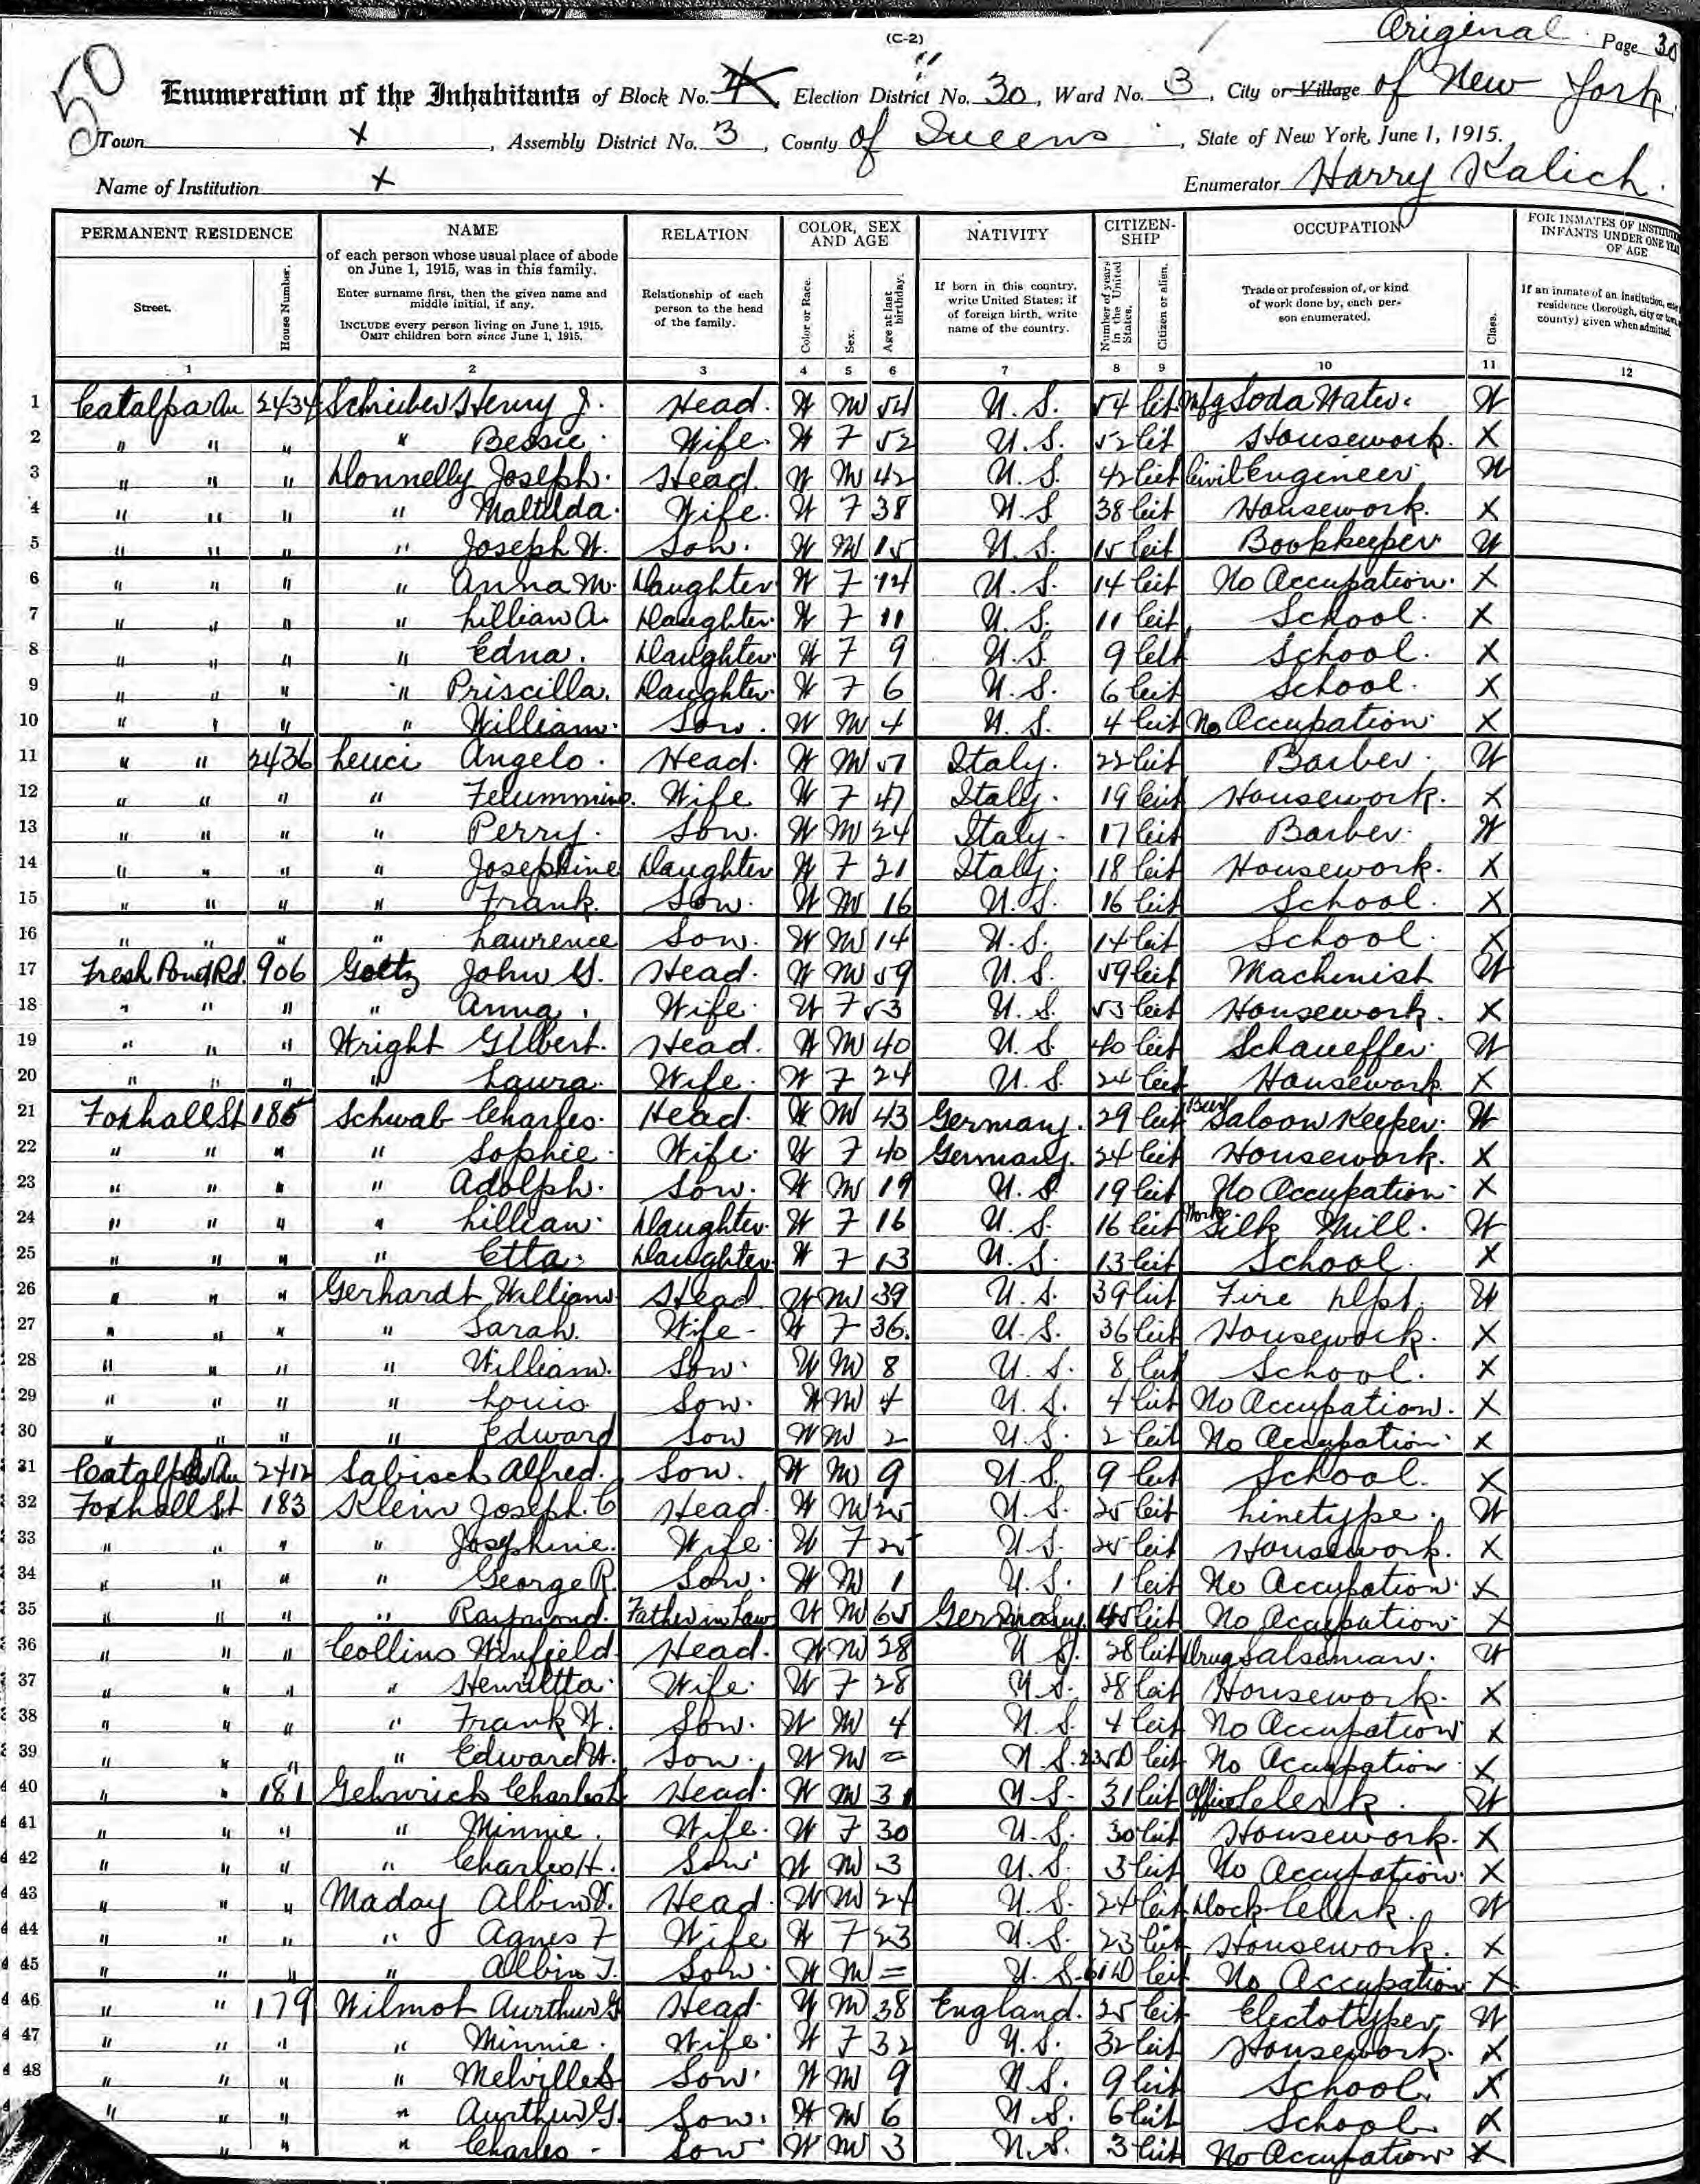 Original Page 30
(C-2)
50
Enumeration of the Inhabitants of Block No. , Election District No. 30, Ward No. 3, City or Village of New York
Town x, Assembly District No. 3, County of Queens, State of New York, June 1, 1915.
Name of Institution x Enumerator Harry Kalich.
PERMANENT RESIDENCE NAME RELATION COLOR, SEX AND AGE NATIVITY CITIZENSHIP OCCUPATION FOR INMATES OF INFANTS UNDER ONE OF AGE
Street. House Number. of each person whose usual place of abode on June 1, 1915, was in this family. Enter surname first, then the given name and middle initial, if any. INCLUDE every person living on June 1, 1915. OMIT children born since June 1, 1915. Relationship of each person to the head of the family. Color or Race. Sex. Age at last birthday. If born in this country, write United States; if of foreign birth, write name of the country. Number of years in the United States. Citizen or alien. Trade or profession of, or kind of work done by, each person enumerated. Class. If an inmate of an institution, residence (borough, city or county) given when admitted.
1 2 3 4 5 6 7 8 9 10 11 12
1 Catalpa Av 2434 Schrieber Henry J. Head. W M 54 U.S. 54 Cit Mfg Soda Water. W
2 " " " " Bessie. Wife. W F 52 U.S. 52 Cit Housework. X
3 " " " Donnelly Joseph. Head. W M 42 U.S. 42 Cit Civil Engineer W
4 " " " " Maltilda. Wife. W F 38 U.S 38 Cit Housework. X
5 " " " " Joseph W. Son. W M 15 U.S. 15 Cit Bookkeeper W
6 " " " " Anna M. Daughter W F 14 U.S. 14 Cit No Occupation. X
7 " " " " Lillian A. Daughter. W F 11 U.S. 11 Cit School. X
8 " " " " Edna. Daughter. W F 9 U.S. 9 Cit School. X
9 " " " " Priscilla. Daughter. W F 6 U.S. 6 Cit School. X
10 " " " " William. Son. W M 4 U.S. 4 Cit No Occupation. X
11 " " 2436 Leuci Angelo. Head. W M 51 Italy. 22 Cit Barber. W
12 " " " " Wife W F 47 Italy. 19 Cit Housework. X
13 " " " " Perry. Son. W M 24 Italy. 17 Cit Barber. W
14 " " " " Josephine Daughter W F 21 Italy. 18 Cit Housework. X
15 " " " " Frank. Son. W M 16 U.S. 16 Cit School. X
16 " " " " Lawrence Son. W M 14 U.S. 14 Cit School. X
17 Fresh Pond Rd. 906 Goltz John G. Head. W M 59 U.S. 59 Cit Machinist W
18 " " " " Anna. Wife. W F 53 U.S. 53 Cit Housework. X
19 " " " Wright Gilbert. Head. W M 40 U.S. 40 Cit Schaueffer. W
20 " " " " Laura. Wife. W F 24 U.S. 24 Cit Housework X
21 Foxhall St 185 Schwab Charles. Head. W M 43 Germany. 29 Cit Beer Saloon Keeper. W
22 " " " " Sophie. Wife. W F 40 Germany. 24 Cit Housework. X
23 " " " " Adolph. Son. W M 19 U.S. 19 Cit No Occupation. X
24 " " " " Lillian. Daughter. W F 16 U.S. 16 Cit Work Silk Mill. W
25 " " " " Etta. Daughter. W F 13 U.S. 13 Cit School. X
26 " " " Gerhardt William. Head W M 39 U.S. 39 Cit Fire Dept. W
27 " " " " Sarah. Wife. W F 36. U.S. 36 Cit Housework. X
28 " " " " William. Son. W M 8 U.S. 8 Cit School. X
29 " " " " Louis Son. W M 4 U.S. 4 Cit No Occupation. X
30 " " " " Edward Son W M 2 U.S. 2 Cit No Occupation. X
31 Catalpa Av 2412 Sabisch Alfred. Son. W M 9 U.S. 9 Cit School. X
32 Foxhall St 183 Klein Joseph C Head. W M 25 U.S. 25 Cit Linetype. W
33 " " " " Josephine. Wife. W F 25 U.S. 25 Cit Housework. X
34 " " " " George R. Son. W M 1 U.S. 1 Cit No Occupation. X
35 " " " " Raymond. Father in Law W M 65 Germany. 45 Cit No Occupation. X
36 " " " Collins Winfield. Head. W M 28 U.S. 28 Cit Drug Salseman. W
37 " " " " Henriltta. Wife. W F 28 U.S. 28 Cit Housework. X
38 " " " " Frank W. Son. W M 4 U.S. 4 Cit No Occupation X
39 " " " " Edward W. Son. W M = U.S. Cit No Occupation. X
40 " " 181 Gehwich Charles Head. W M 31 U.S. 31 Cit Office Clerk. W
41 " " " " Minnie. Wife. W F 30 U.S. 30 Cit Housework. X
42 " " " " Charles H. Son W M 3 U.S. 3 Cit No Occupation. X
43 " " " Maday Albin Head. W M 24 U.S. 24 Cit Dock Clerk. W
44 " " " " Agnes F Wife W F 23 U.S. 23 Cit Housework. X
45 " " " " Albin J. Son. W M = U.S. Cit No Occupation X
46 " " 179 Wilmot Aurthur G. Head. W M 38 England. 25 Cit Electotyper W
47 " " " " Minnie. Wife. W F 32 U.S. 32 Cit Housework. X
48 " " " " Melville S Son. W M 9 U.S. 9 Cit School. X
" " " " Aurthur G. Son. W M 6 U.S. 6 Cit School. X
" " " Charles Son W M 3 U.S. 3 Cit No Occupation X